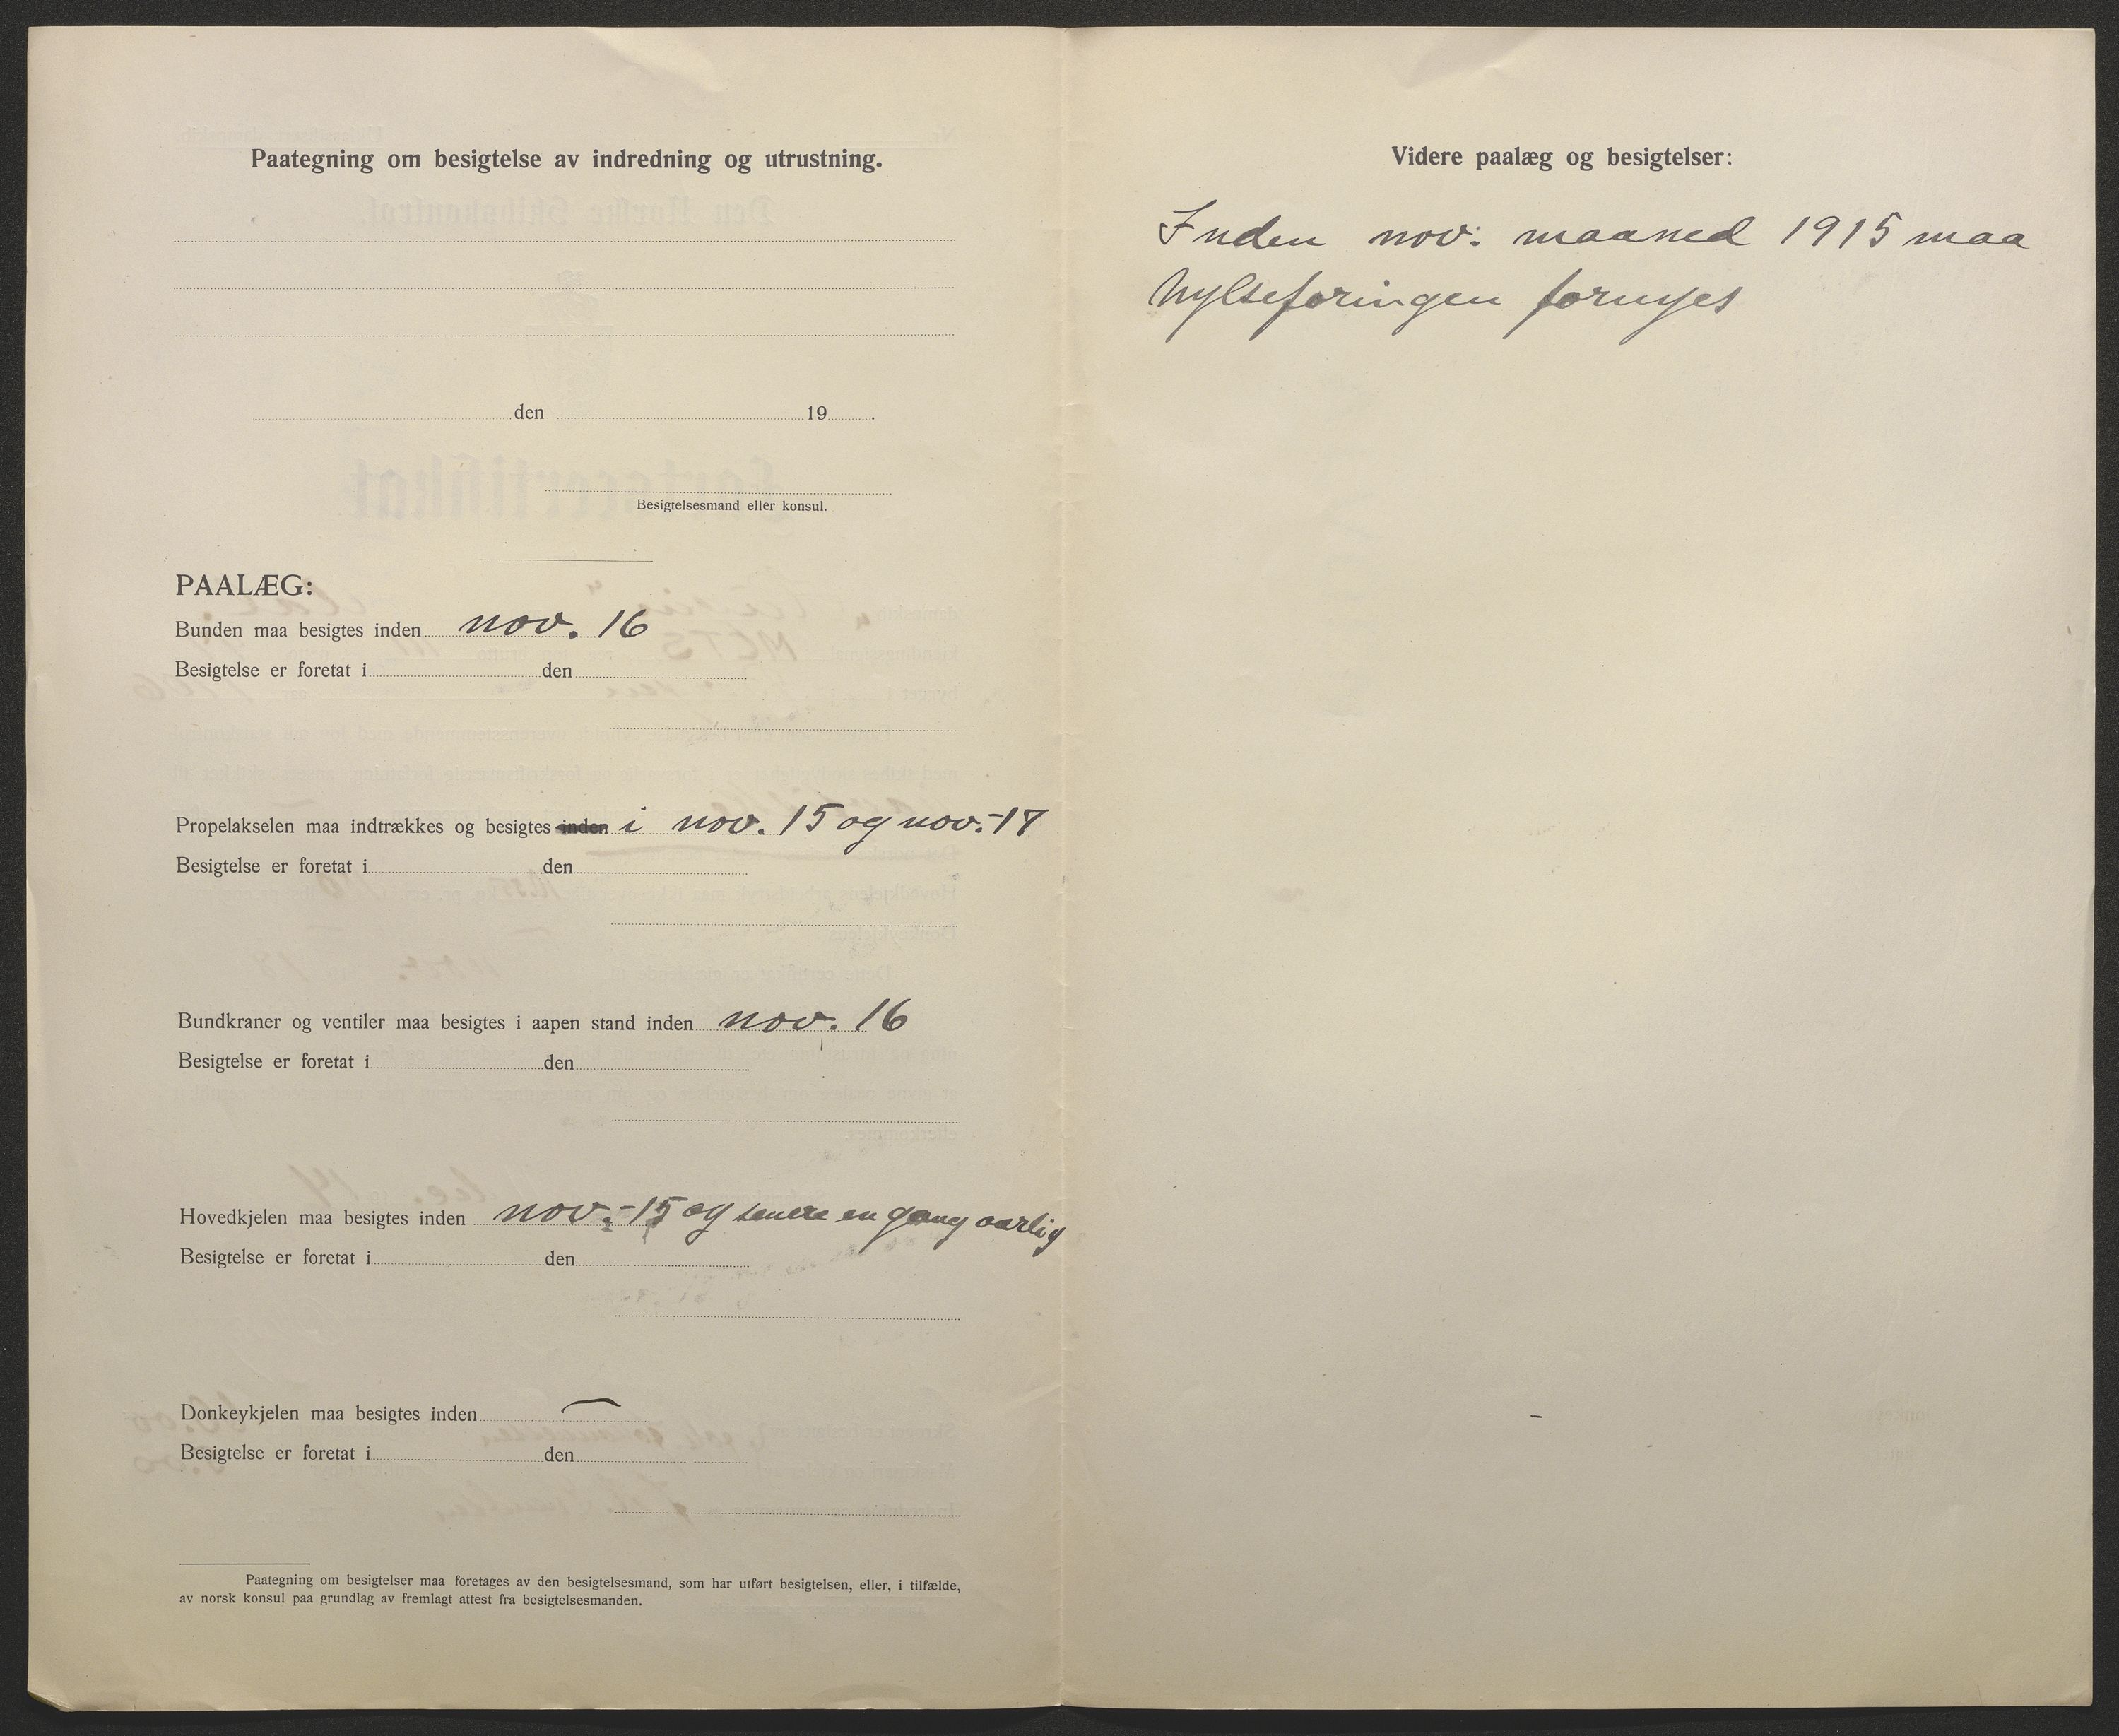 Paategning om besigtelse av indredning og utrustning.
den 19 .
Besigtelsesmand eller konsul.
PAALÆG:
Bunden maa besigtes inden nov. 16
Besigtelse er foretat i den
Propelakselen maa indtrækkes og besigtes inden i nov. 15 og nov.-17
Besigtelse er foretat i den
Bundkraner og ventiler maa besigtes i aapen stand inden nov. 16
Besigtelse er foretat i den
Hovedkjelen maa besigtes inden nov.-15 og senere en gang aarlig
Besigtelse er foretat i den
Donkeykjelen maa besigtes inden —
Besigtelse er foretat i den
Paategning om besigtelser maa foretages av den besigtelsesmand, som har utført besigtelsen, eller, i tilfælde,
av norsk konsul paa grundlag av fremlagt attest fra besigtelsesmanden.
Videre paalæg og besigtelser:
Inden nov. maaned 1915 maa
hylseforingen fornyes